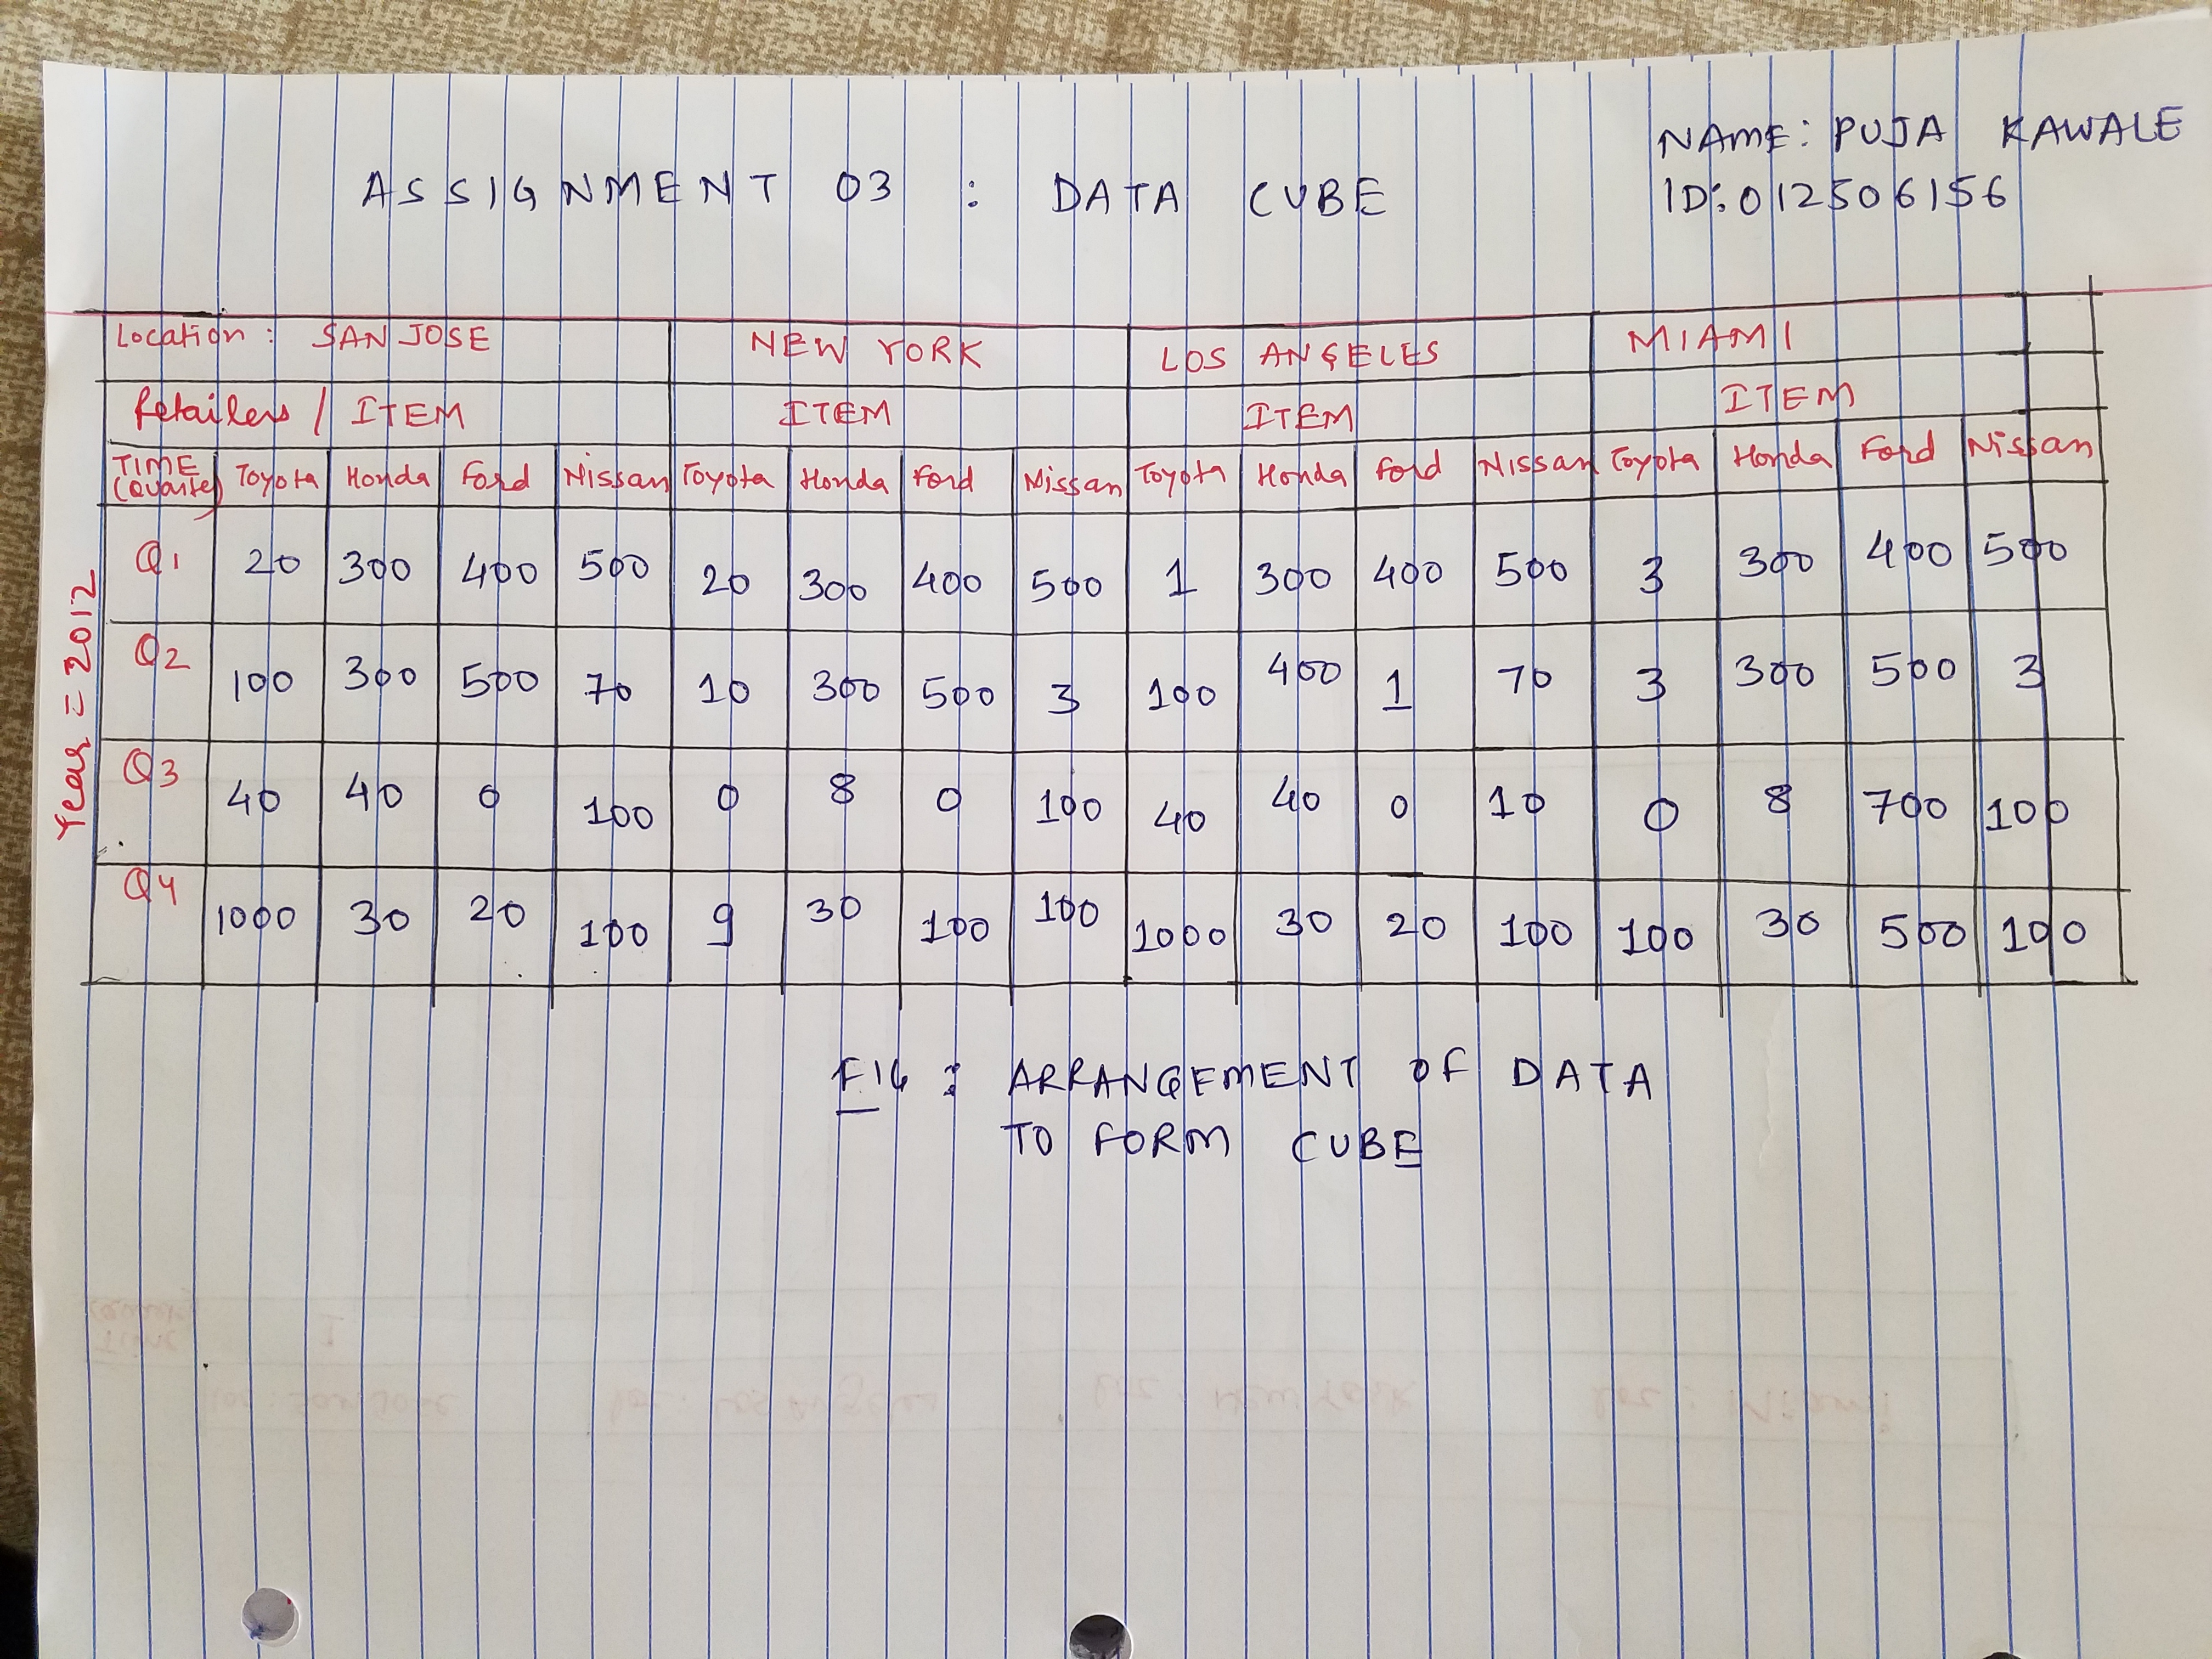 NAME: PUJA KAWALE
ASSIGNMENT 03 : DATA CUBE ID: 012506156
Location: SAN JOSE NEW YORK LOS ANGELES MIAMI
Retailer / ITEM ITEM ITEM ITEM
TIME (Quarter) Toyota Honda Ford Nissan Toyota Honda Ford Nissan Toyota Honda Ford Nissan Toyota Honda Ford Nissan
Q1 20 300 400 500 20 300 400 500 1 300 400 500 3 300 400 500
Year = 2012
Q2 100 300 500 70 10 300 500 3 100 400 1 70 3 300 500 3
Q3 40 40 0 100 0 8 0 100 40 40 0 10 0 8 700 100
Q4 1000 30 20 100 9 30 100 100 1000 30 20 100 100 30 500 100
FIG : ARRANGEMENT OF DATA
TO FORM CUBE